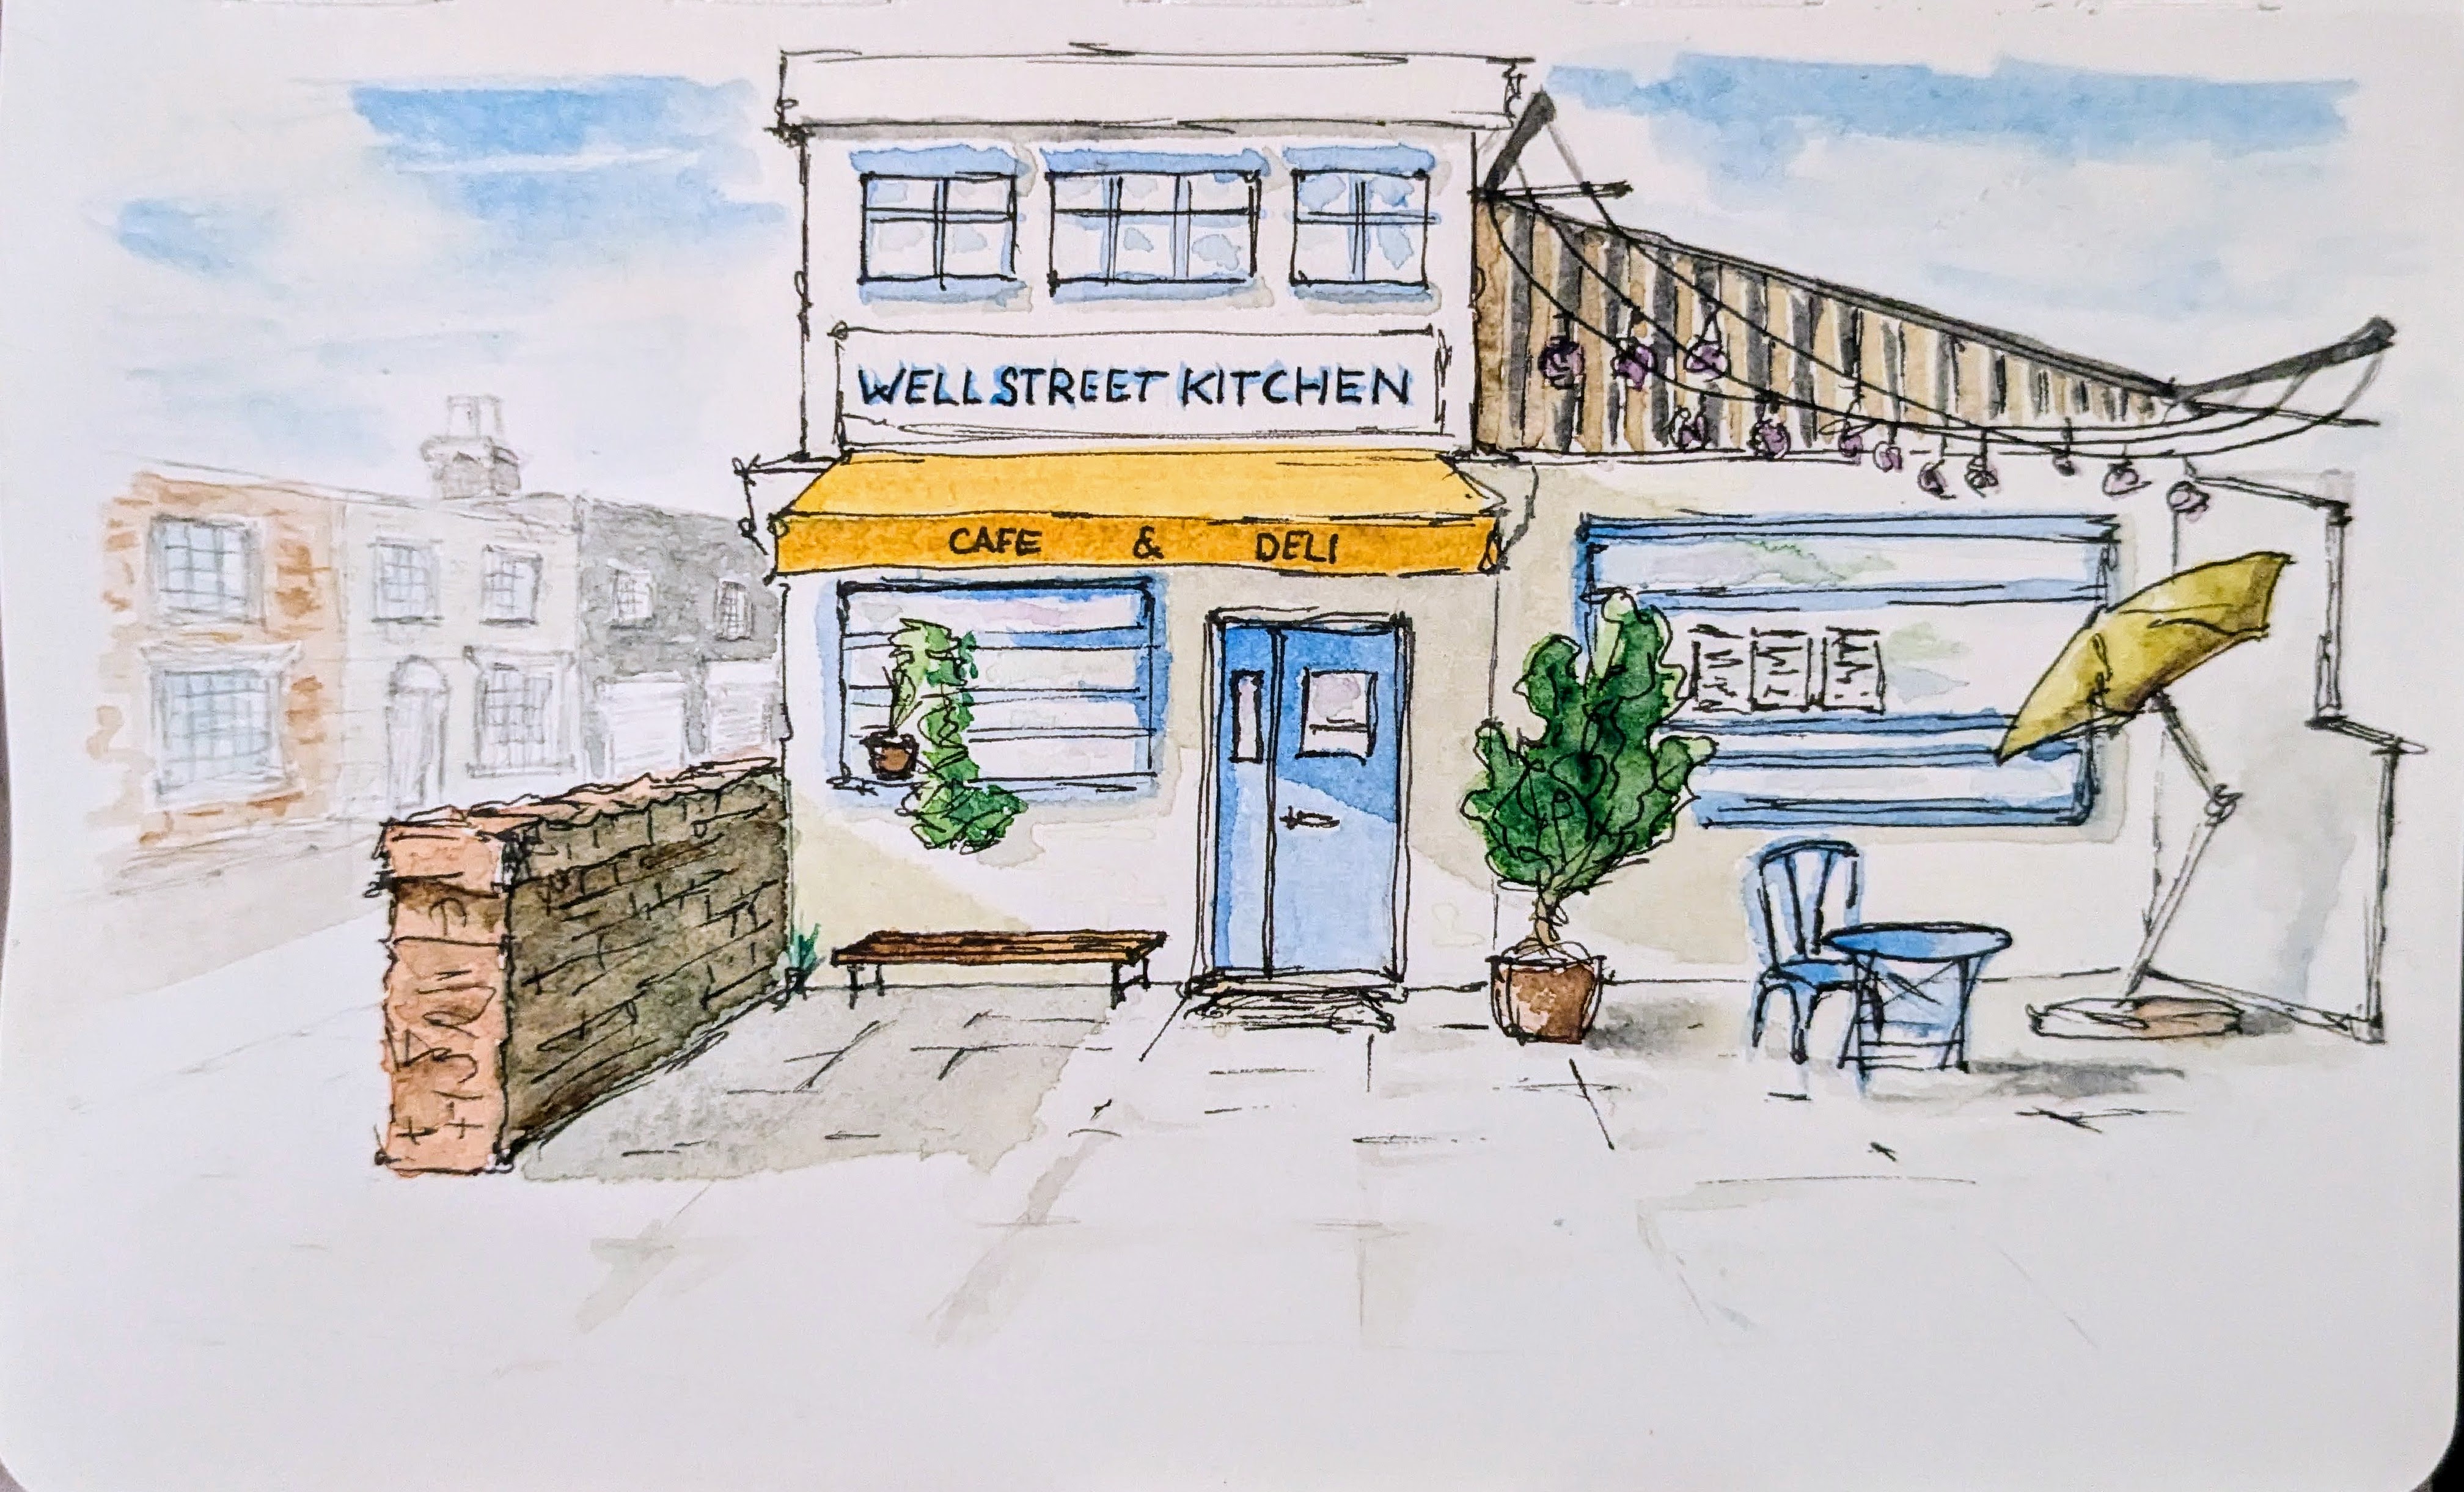 WELL STREET KITCHEN
CAFE & DELI